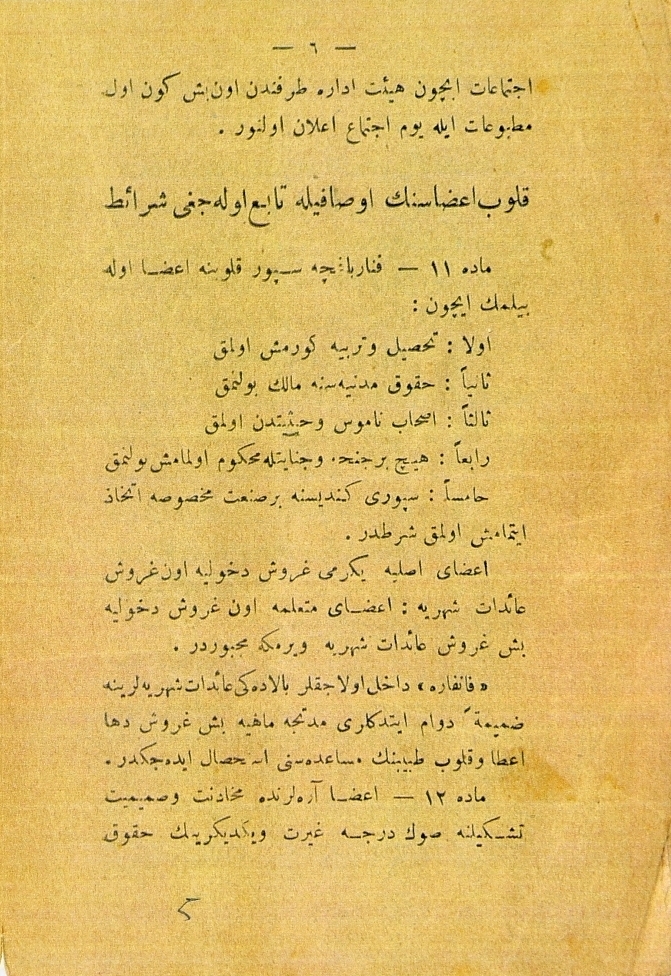 — ٦ —
اجتماعات ایچون هیئت اداره طرفندن اون بش کون اول
مطبوعات ایله یوم اجتماع اعلان اولنور .
قلوب اعضاسنك اوصافیله تابع اوله جغی شرائط
ماده ١١ — فنارباغچه سپور قلوبنه اعضا اوله
بیلمك ایچون :
اولا : تحصیل و تربیه کورمش اولمق
ثانیاً : حقوق مدنیه سنه مالك بولنمق
ثالثاً : اصحاب ناموس وحیثیتدن اولمق
رابعاً : هیچ برجنحه وجنایتله محکوم اولمامش بولنمق
خامساً : سپوری کندیسنه برصنعت مخصوصه اتخاذ
ایتمامش اولمق شرطدر .
اعضای اصلیه یکرمی غروش دخولیه اون غروش
عائدات شهریه : اعضای متعلمه اون غروش دخولیه
بش غروش عائدات شهریه ویرمکه مجبوردر .
« فانفاره » داخل اولاجقلر بالاده کی عائدات شهریه لرینه
ضمیمةً دوام ایتدکلری مدتجه ماهیه بش غروش دها
اعطا وقلوب طبیبنك مساعده سنی استحصال ایده جکدر .
ماده ١٢ — اعضا آره لرنده مخادنت وصمیمیت
تشکیلنه صوك درجه غیرت ویکدیکرینك حقوق
5